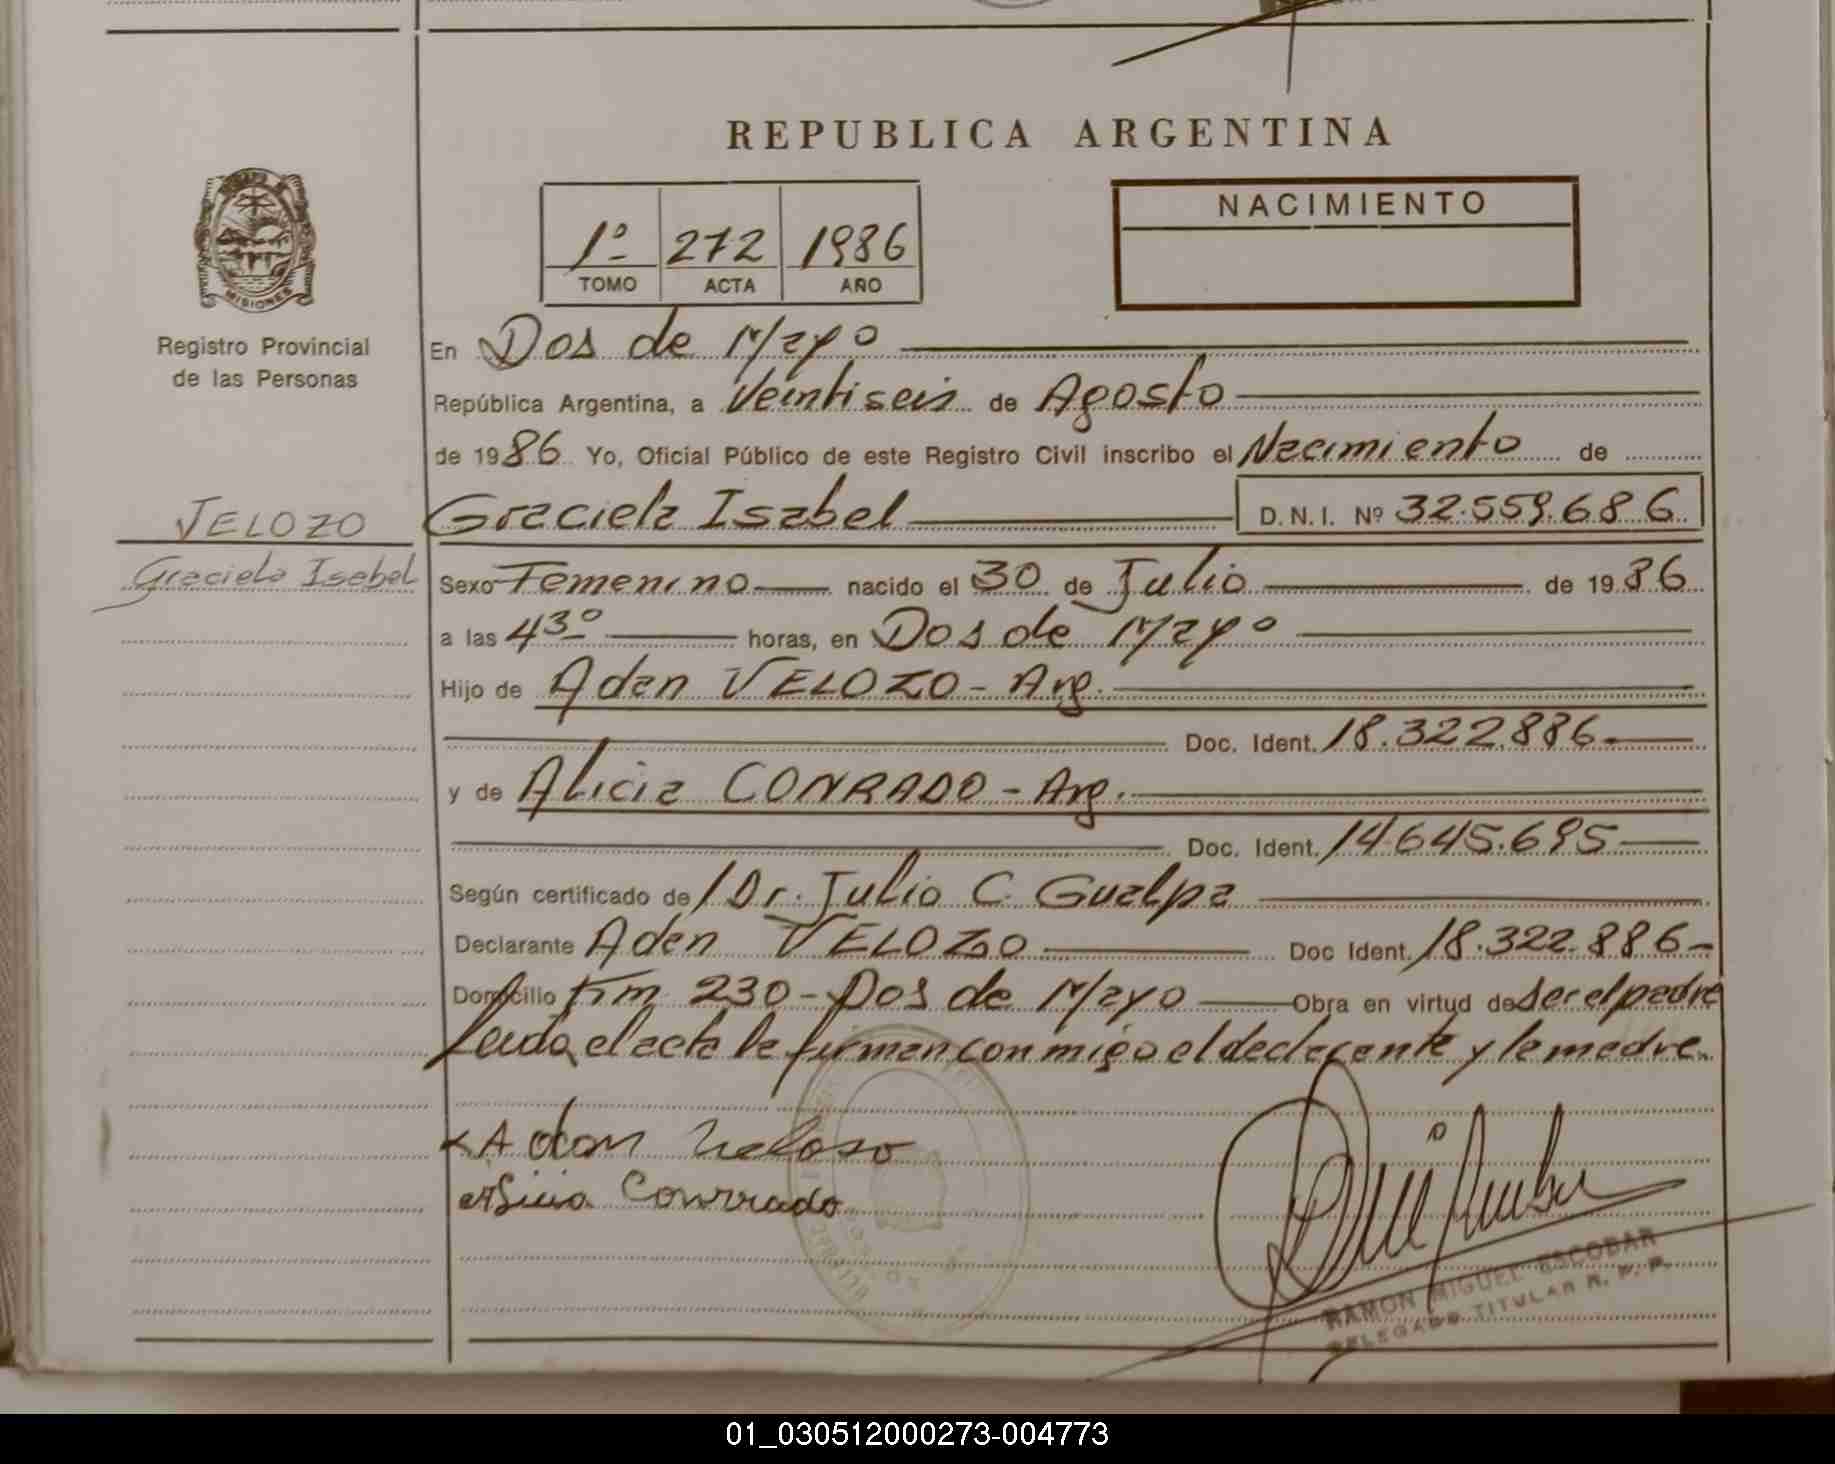 REPUBLICA ARGENTINA
1º 272 1986
TOMO ACTA AÑO
NACIMIENTO
MISIONES
Registro Provincial
de las Personas
VELOZO
Graciela Isabel
En Dos de Mayo
República Argentina, a Veintiseis de Agosto
de 1986 Yo, Oficial Público de este Registro Civil inscribo el Nacimiento de
Graciela Isabel D.N.I. Nº 32.559.686
Sexo Femenino nacido el 30 de Julio de 1986
a las 4 3º horas, en Dos de Mayo
Hijo de Adan VELOZO - Arg.
Doc. Ident. 18.322.886.
y de Alicia CONRADO - Arg.
Doc. Ident. 14.645.695
Según certificado de Dr. Julio C. Gualpa
Declarante Adan VELOZO Doc Ident. 18.322.886
Domicilio Km 230 - Dos de Mayo Obra en virtud de ser el padre
Leida el acta la firman conmigo el declarante y la madre.
Adan Veloso
Alicia Conrrado
RAMON MIGUEL ESCOBAR
DELEGADO TITULAR R. P. P.
01_030512000273-004773